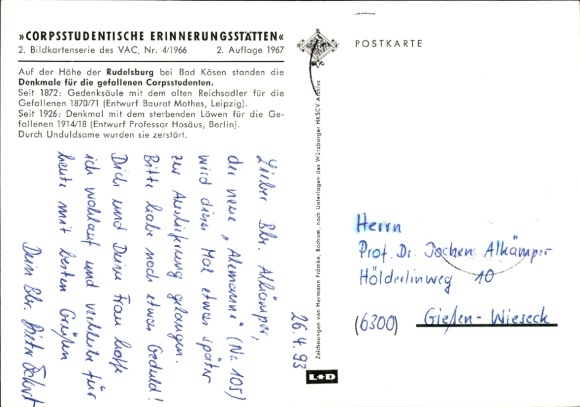 »CORPSSTUDENTISCHE ERINNERUNGSSTÄTTEN«
2. Bildkartenserie des VAC, Nr. 4/1966 2. Auflage 1967
Auf der Höhe der Rudelsburg bei Bad Kösen standen die
Denkmale für die gefallenen Corpsstudenten.
Seit 1872: Gedenksäule mit dem alten Reichsadler für die
Gefallenen 1870/71 (Entwurf Baurat Mothes, Leipzig).
Seit 1926: Denkmal mit dem sterbenden Löwen für die Ge-
fallenen 1914/18 (Entwurf Professor Hosäus, Berlin).
Durch Unduldsame wurden sie zerstört.
26.4.93
Lieber Bbr. Alkämper,
der neue „Alemanne" (Nr. 105)
wird dieses Mal etwas später
zur Auslieferung gelangen.
Bitte habe noch etwas Geduld!
Dich und Deine Frau hoffe
ich wohlauf und verbleibe für
heute mit besten Grüßen
Dein Bbr.
Zeichnungen von Hermann Främke, Bochum, nach Unterlagen des Würzburger HKSCV Archivs
L+D
POSTKARTE
Herrn
Prof. Dr. Jochen Alkämper
Hölderlinweg 10
(6300) Gießen-Wieseck